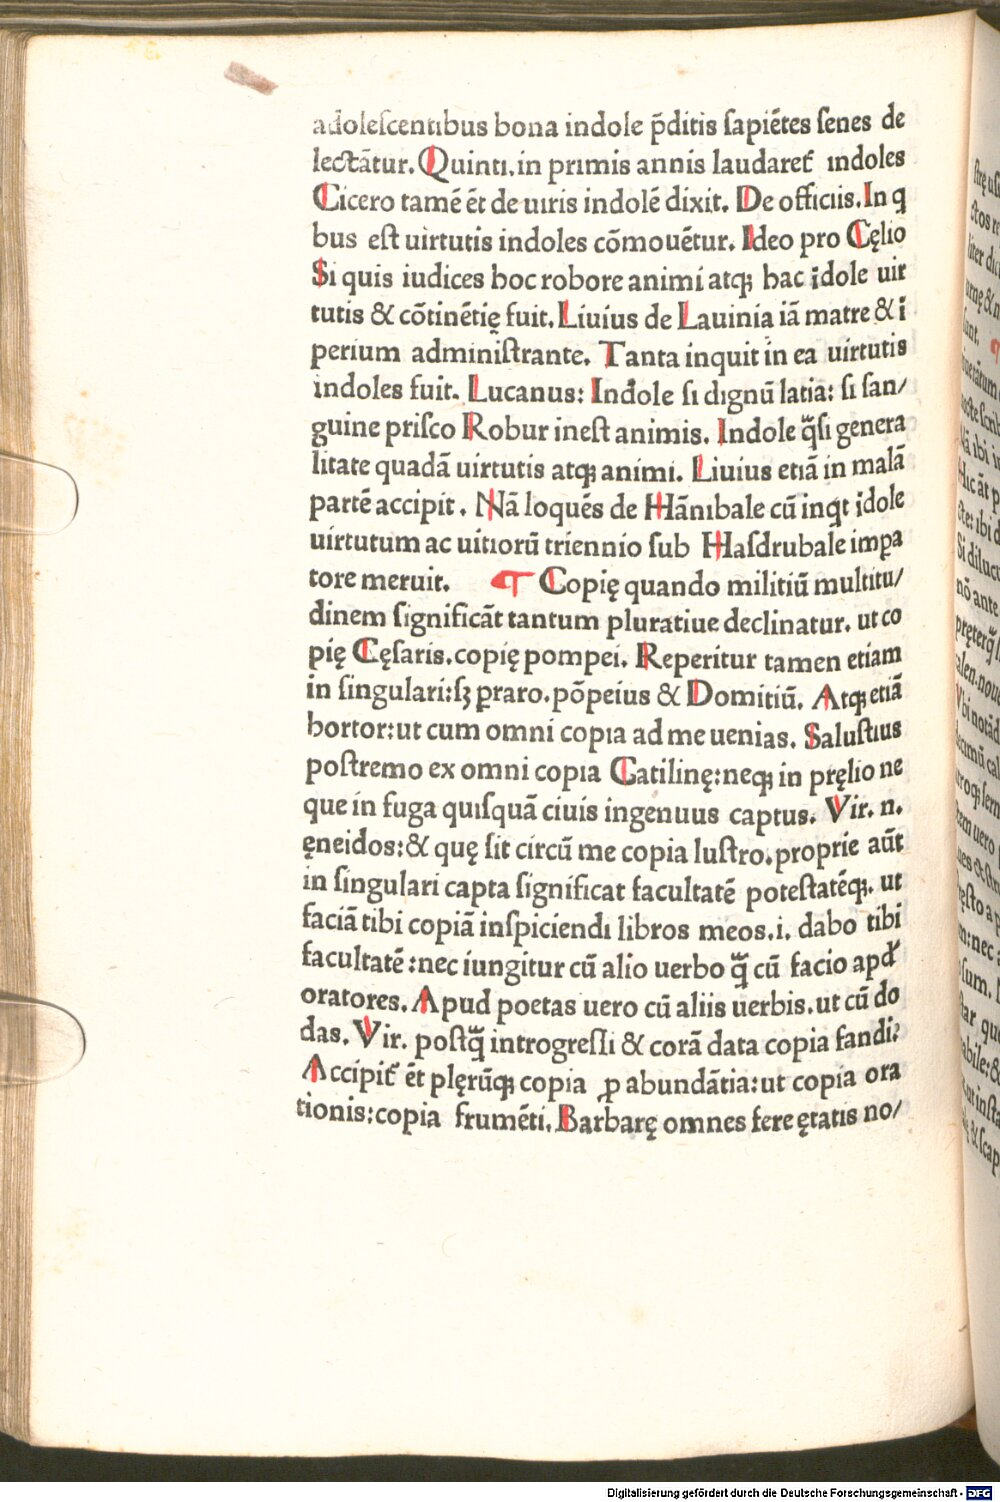 adolescentibus bona indole p̄ditis sapiētes senes de
lectātur. Quinti. in primis annis laudaret᷑ indoles
Cicero tamē ēt de uiris indolē dixit. De officiis. In q
bus est uirtutis indoles cōmouētur. Ideo pro Cęlio
Si quis iudices hoc robore animi atqꝫ hac īdole uir
tutis & cōtinētię fuit. Liuius de Lauinia iā matre & ī
perium administrante. Tanta inquit in ea uirtutis
indoles fuit. Lucanus: Indole si dignū latia: si san/
guine prisco Robur inest animis. Indole q̄si genera
litate quadā uirtutis atqꝫ animi. Liuius etiā in malā
partē accipit. Nā loquēs de Hānibale cū inqt īdole
uirtutum ac uitiorū triennio sub Hasdrubale imꝑa
tore meruit. ¶ Copię quando militiū multitu/
dinem significāt tantum pluratiue declinatur. ut co
pię Cęsaris. copię pompei. Reperitur tamen etiam
in singulari: sꝫ ꝑraro. pōpeius & Domitiū. Atqꝫ etiā
hortor: ut cum omni copia ad me uenias. Salustius
postremo ex omni copia Catilinę: neqꝫ in pręlio ne
que in fuga quisquā ciuis ingenuus captus. Vir. n.
ęneidos: & quę sit circū me copia lustro. proprie aūt
in singulari capta significat facultatē potestatēqꝫ. ut
faciā tibi copiā inspiciendi libros meos. i. dabo tibi
facultatē: nec iungitur cū alio uerbo q̄ cū facio apd́
oratores. Apud poetas uero cū aliis uerbis. ut cū do
das. Vir. postq̄ introgressi & corā data copia fandi:
Accipit᷑ ēt plęrūqꝫ copia ꝓ abundātia: ut copia ora
tionis: copia frumēti. Barbarę omnes fere ętatis no/
Digitalisierung gefördert durch die Deutsche Forschungsgemeinschaft - DFG